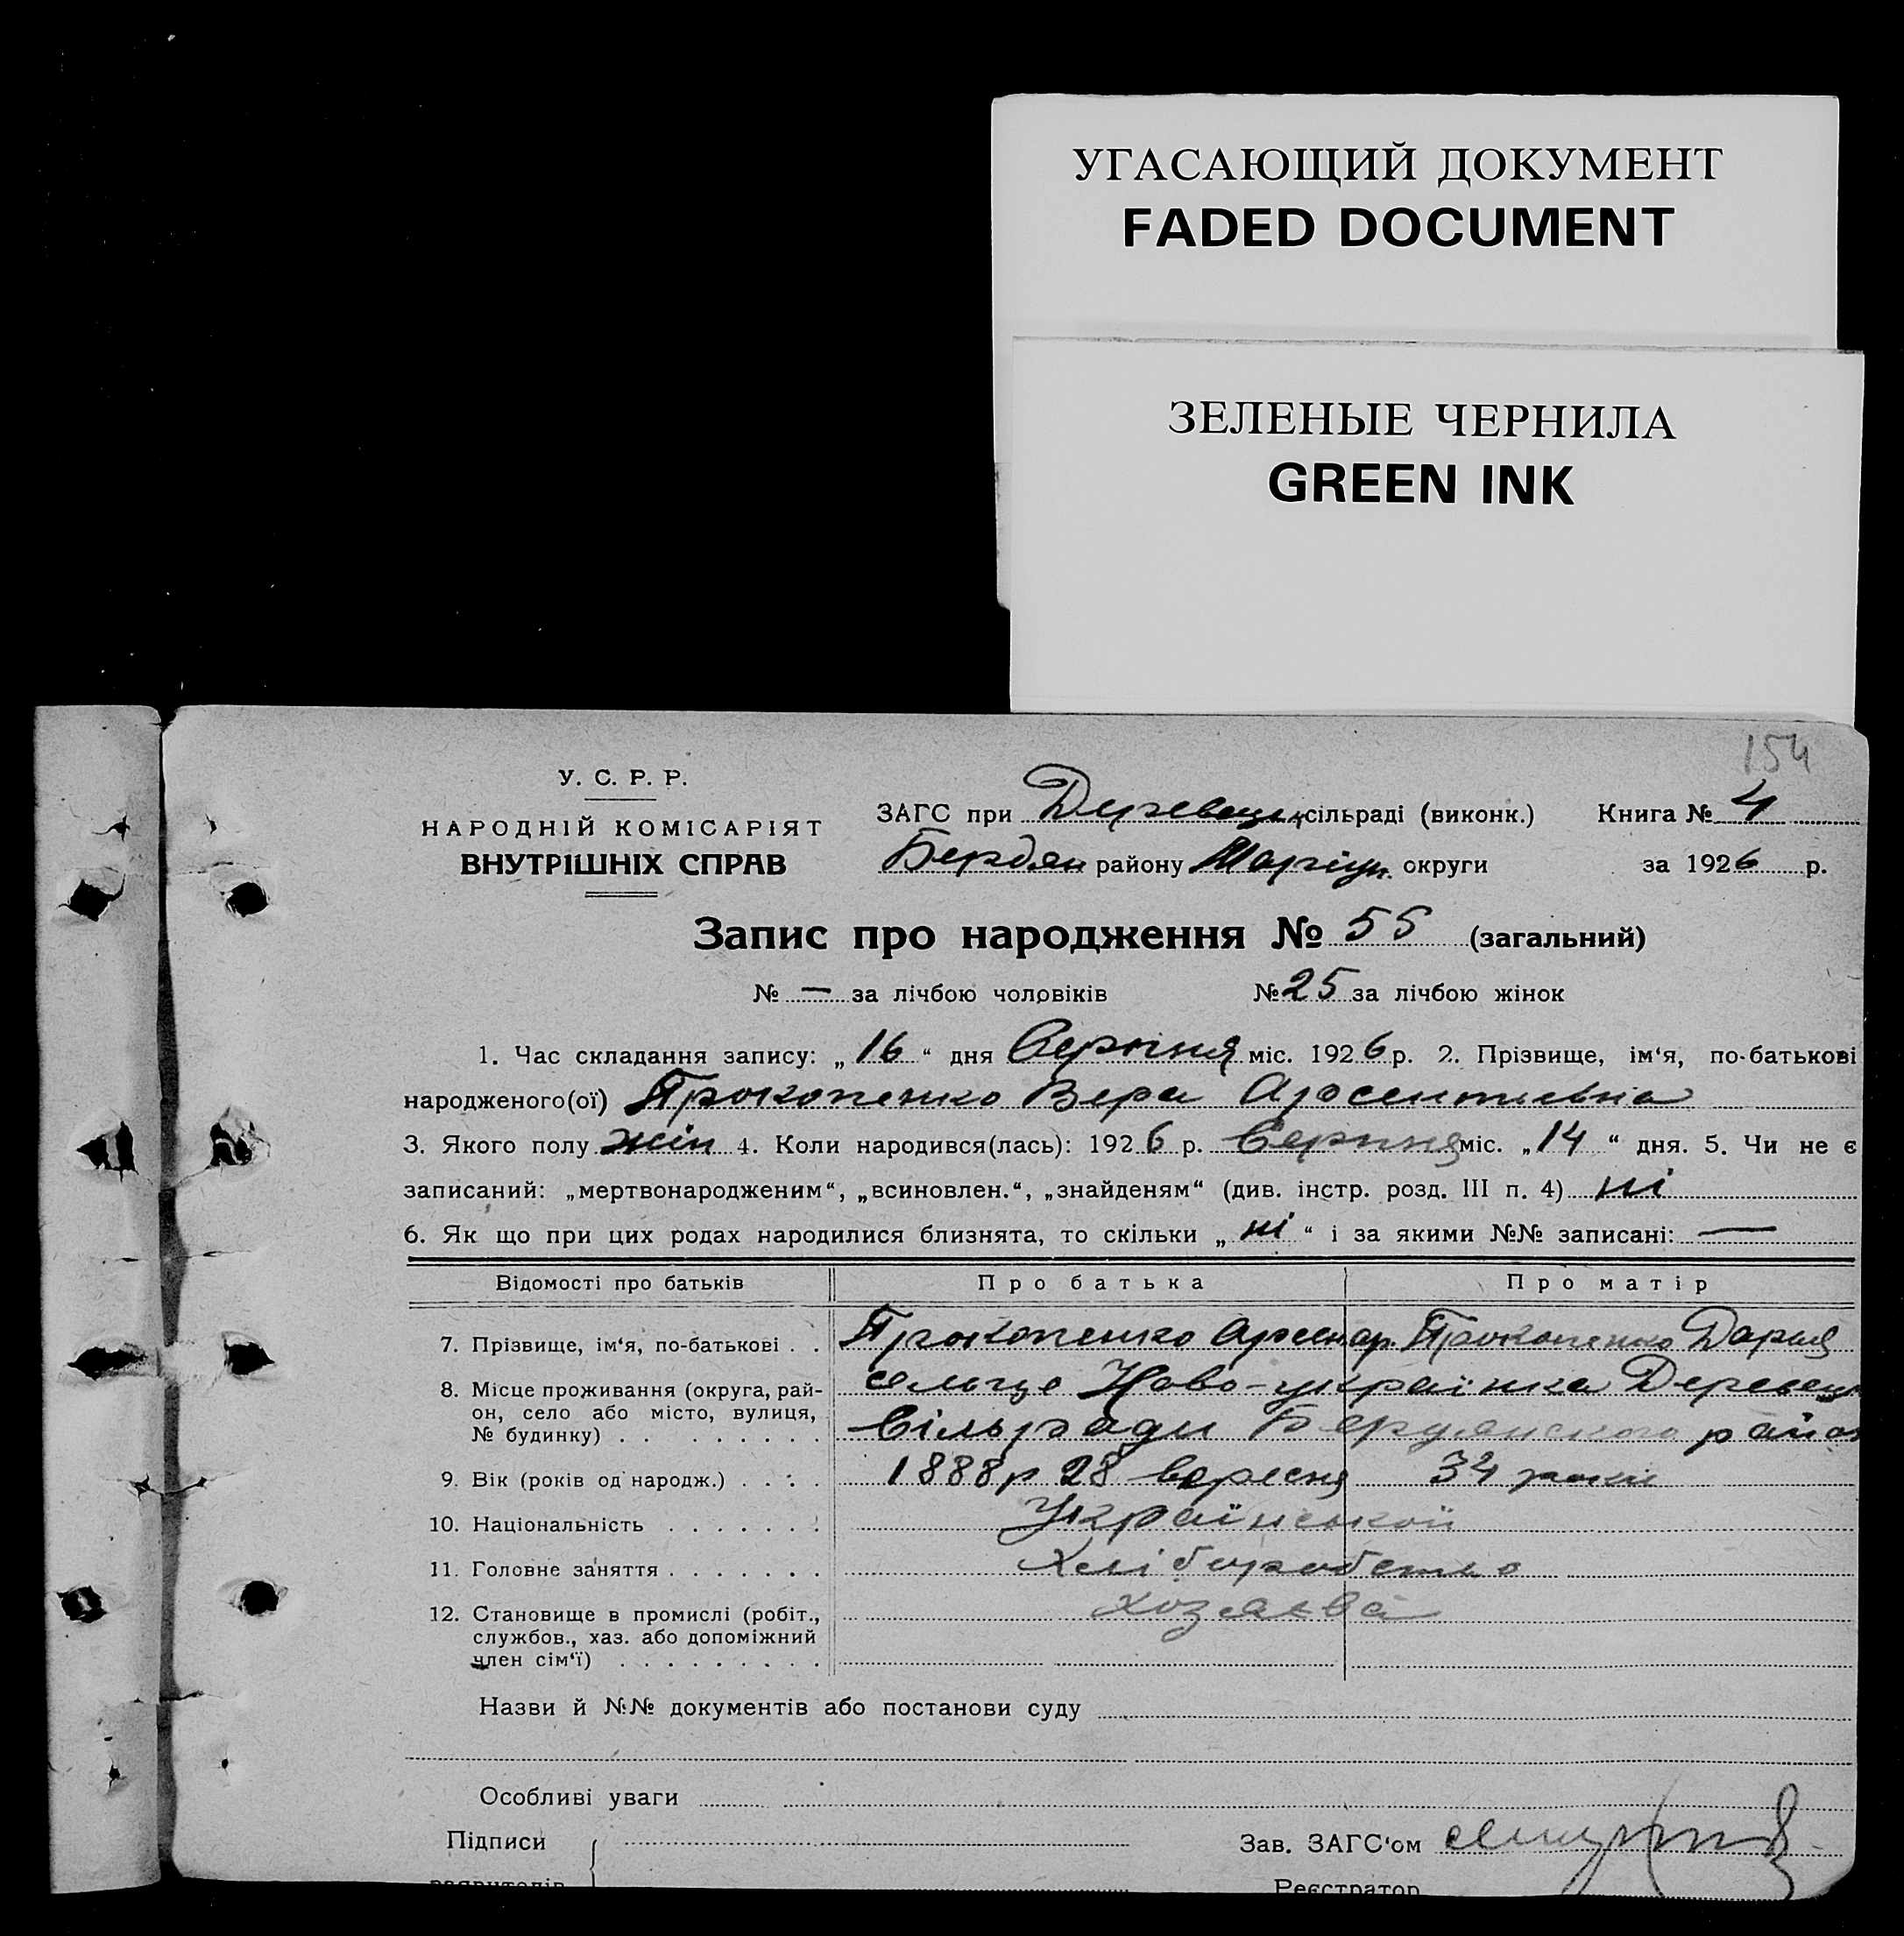 УГАСАЮЩИЙ ДОКУМЕНТ
FADED DOCUMENT
ЗЕЛЕНЫЕ ЧЕРНИЛА
GREEN INK
154
У. С. Р. Р.
НАРОДНІЙ КОМІСАРІЯТ
ВНУТРІШНІХ СПРАВ
ЗАГС при Деревецк сільраді (виконк.) Книга № 4
Бердян району Маріуп. округи за 1926 р.
Запис про народження № 55 (загальний)
№ — за лічбою чоловіків № 25 за лічбою жінок
1. Час складання запису: „16“ дня Серпня міс. 1926 р. 2. Прізвище, ім‘я, по-батькові
народженого(ої) Прокопенко Вера Арсентиевна
3. Якого полу жін 4. Коли народився(лась): 1926 р. Серпня міс. „14“ дня. 5. Чи не є
записаний: „мертвонародженим“, „всиновлен.“, „знайденям“ (див. інстр. розд. III п. 4) ні
6. Як що при цих родах народилися близнята, то скільки „ні“ і за якими №№ записані: —
Відомості про батьків Про батька Про матір
7. Прізвище, ім‘я, по-батькові . . Прокопенко Прокопенко Дария
8. Місце проживання (округа, рай- сельце Ново-україїнка Деревецк
он, село або місто, вулиця, Сільради Бердянского район
№ будинку) . . . . . . . .
9. Вік (років од народж.) . . . . 1888 р 28 вересня 34 роки
10. Національність . . . . . . . Української
11. Головне заняття . . . . . . . Хліборобство
12. Становище в промислі (робіт., хозяєва
службов., хаз. або допоміжний
член сім‘ї) . . . . . . . . .
Назви й №№ документів або постанови суду
Особливі уваги
Підписи Зав. ЗАГС‘ом
заявителів Реєстратор